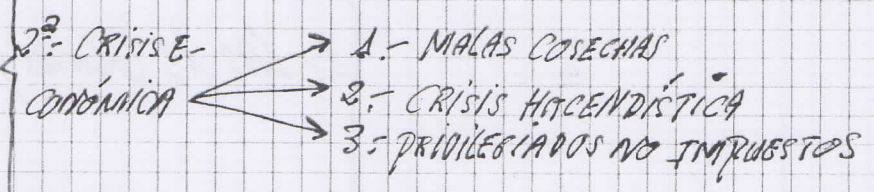 2ª- CRISIS E-
CONÓMICA
1.- MALAS COSECHAS
2.- CRISIS HACENDÍSTICA
3.- PRIVILEGIADOS NO IMPUESTOS